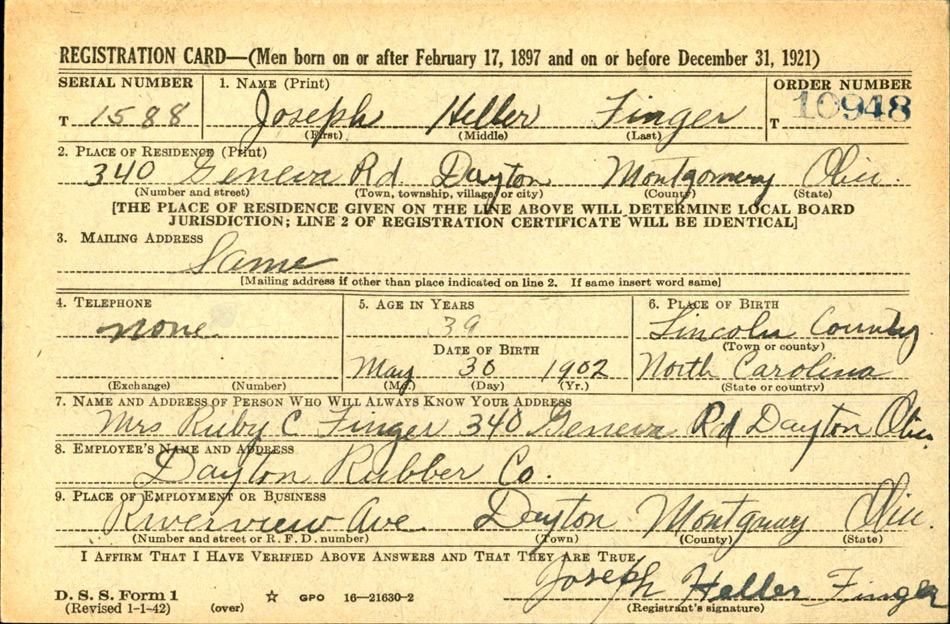 REGISTRATION CARD—(Men born on or after February 17, 1897 and on or before December 31, 1921)
SERIAL NUMBER 1. NAME (Print) ORDER NUMBER
T 1588 Joseph Heller Finger T 10948
(First) (Middle) (Last)
2. PLACE OF RESIDENCE (Print)
340 Geneva Rd. Dayton Montgomery Ohio.
(Number and street) (Town, township, village, or city) (County) (State)
[THE PLACE OF RESIDENCE GIVEN ON THE LINE ABOVE WILL DETERMINE LOCAL BOARD
JURISDICTION; LINE 2 OF REGISTRATION CERTIFICATE WILL BE IDENTICAL]
3. MAILING ADDRESS
Same
[Mailing address if other than place indicated on line 2. If same insert word same]
4. TELEPHONE 5. AGE IN YEARS 6. PLACE OF BIRTH
none 39 Lincoln County
(Town or county)
DATE OF BIRTH
May 30 1902 North Carolina
(Exchange) (Number) (Mo.) (Day) (Yr.) (State or country)
7. NAME AND ADDRESS OF PERSON WHO WILL ALWAYS KNOW YOUR ADDRESS
Mrs Ruby C Finger 340 Geneva Rd Dayton Ohio.
8. EMPLOYER'S NAME AND ADDRESS
Dayton Rubber Co.
9. PLACE OF EMPLOYMENT OR BUSINESS
Riverview Ave Dayton Montgomery Ohio.
(Number and street or R. F. D. number) (Town) (County) (State)
I AFFIRM THAT I HAVE VERIFIED ABOVE ANSWERS AND THAT THEY ARE TRUE.
Joseph Heller Finger
D. S. S. Form 1
(Revised 1-1-42) (over) ☆ GPO 16—21630-2 (Registrant's signature)